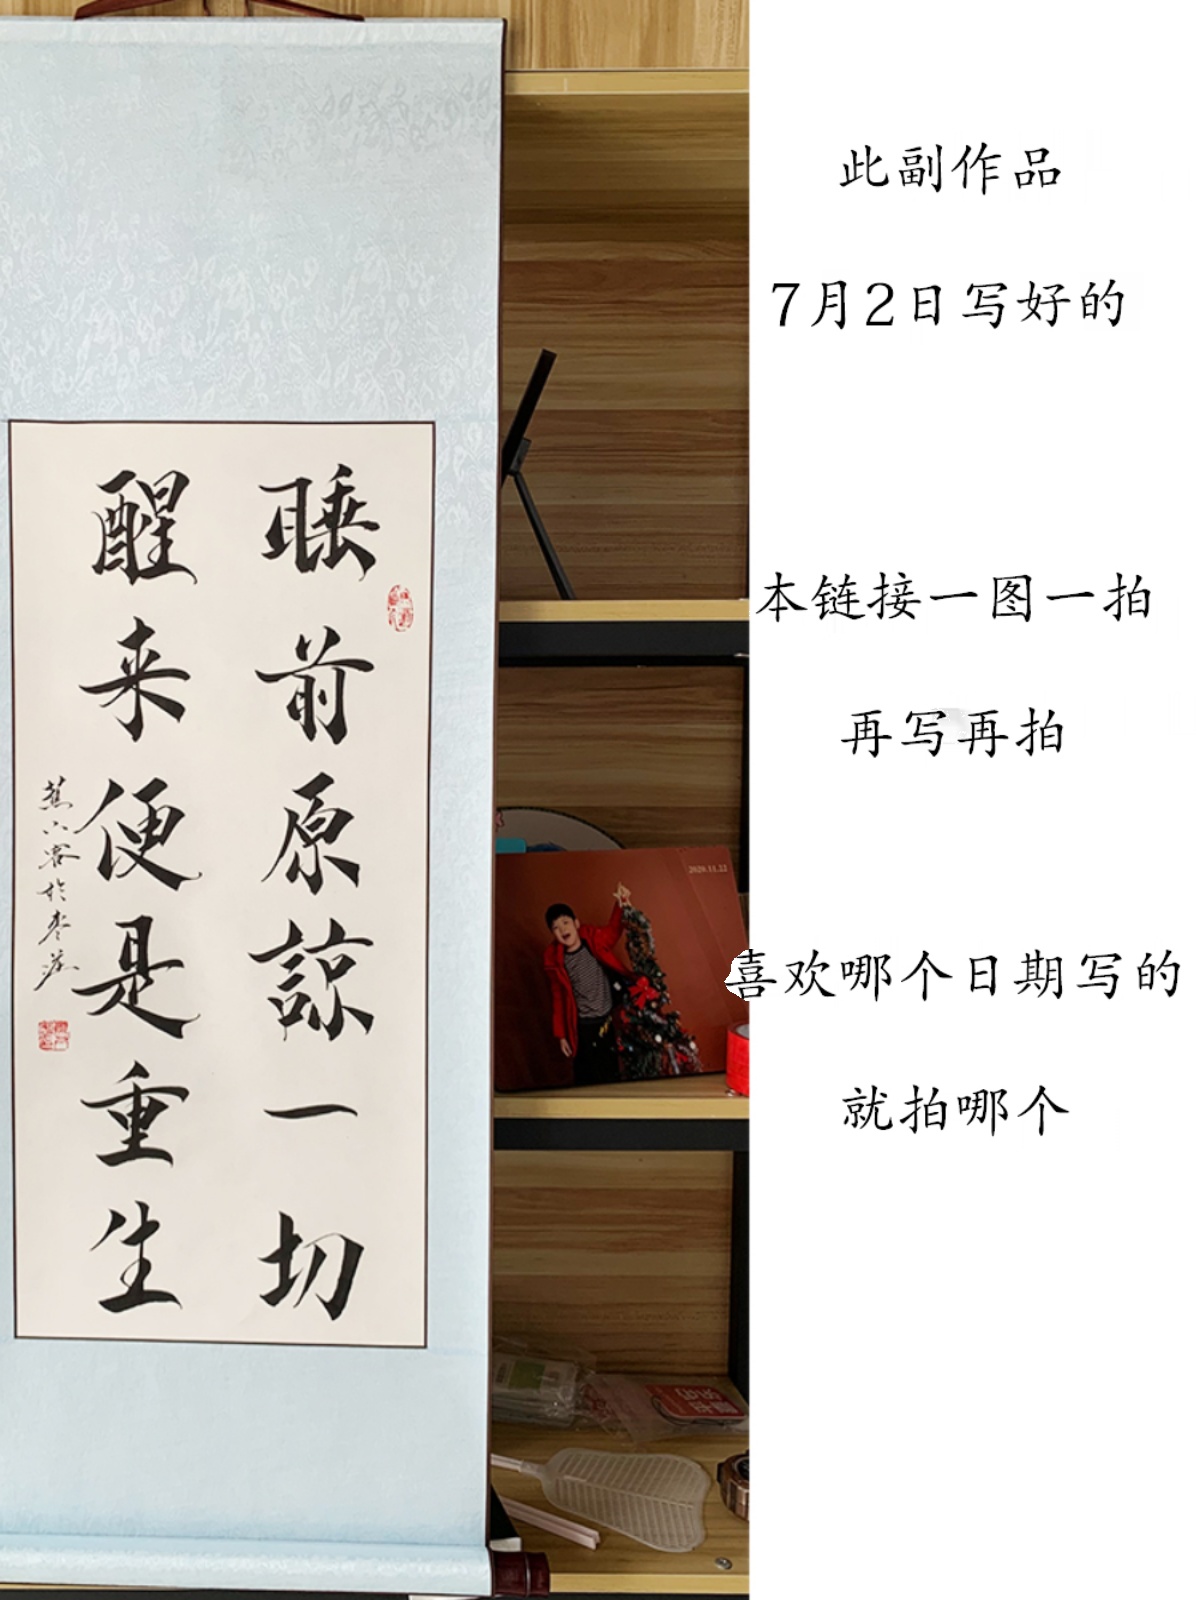 睡前原諒一切
醒来便是重生
蕉六客於
此副作品
7月2日写好的
本链接一图一拍
再写再拍
喜欢哪个日期写的
就拍哪个
2020.11.22